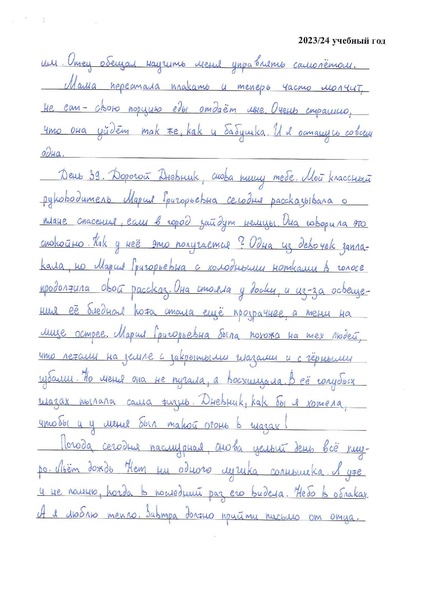 2023/24 учебный год
им. Отец обещал научить меня управлять самолётом.
Мама перестала плакать и теперь часто молчит,
не ест - свою порцию еды отдаёт мне. Очень страшно,
что она уйдёт так же, как и бабушка. И я останусь совсем
одна.
День 39. Дорогой Дневник, снова пишу тебе. Мой классный
руководитель Мария Григорьевна сегодня рассказывала о
плане спасения, если в город зайдут немцы. Она говорила это
спокойно. Как у неё это получается? Одна из девочек запла-
кала, но Мария Григорьевна с холодными нотками в голосе
продолжила свой рассказ. Она стояла у доски, и из-за освеще-
ния её бледная кожа стала ещё прозрачнее, а тени на
лице острее. Мария Григорьевна была похожа на тех людей,
что лежали на земле с закрытыми глазами и с чёрными
губами. Но меня она не пугала, а восхищала. В её голубых
глазах пылала сама жизнь. Дневник, как бы я хотела,
чтобы и у меня был такой огонь в глазах!
Погода сегодня пасмурная, снова целый день всё хму-
ро. Льёт дождь. Нет ни одного лучика солнышка. Я уже
и не помню, когда в последний раз его видела. Небо в облаках.
А я люблю тепло. Завтра должно прийти письмо от отца.